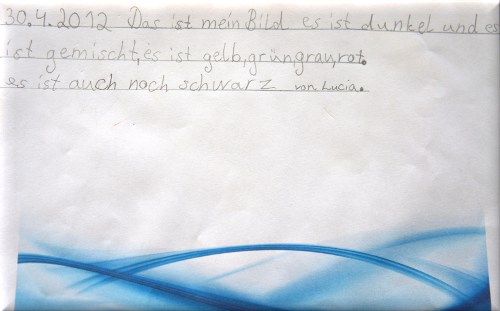 30.4.2012 Das ist mein Bild es ist dunkel und es
ist gemischt,es ist gelb,grün,grau,rot.
es ist auch noch schwarz von Lucia.